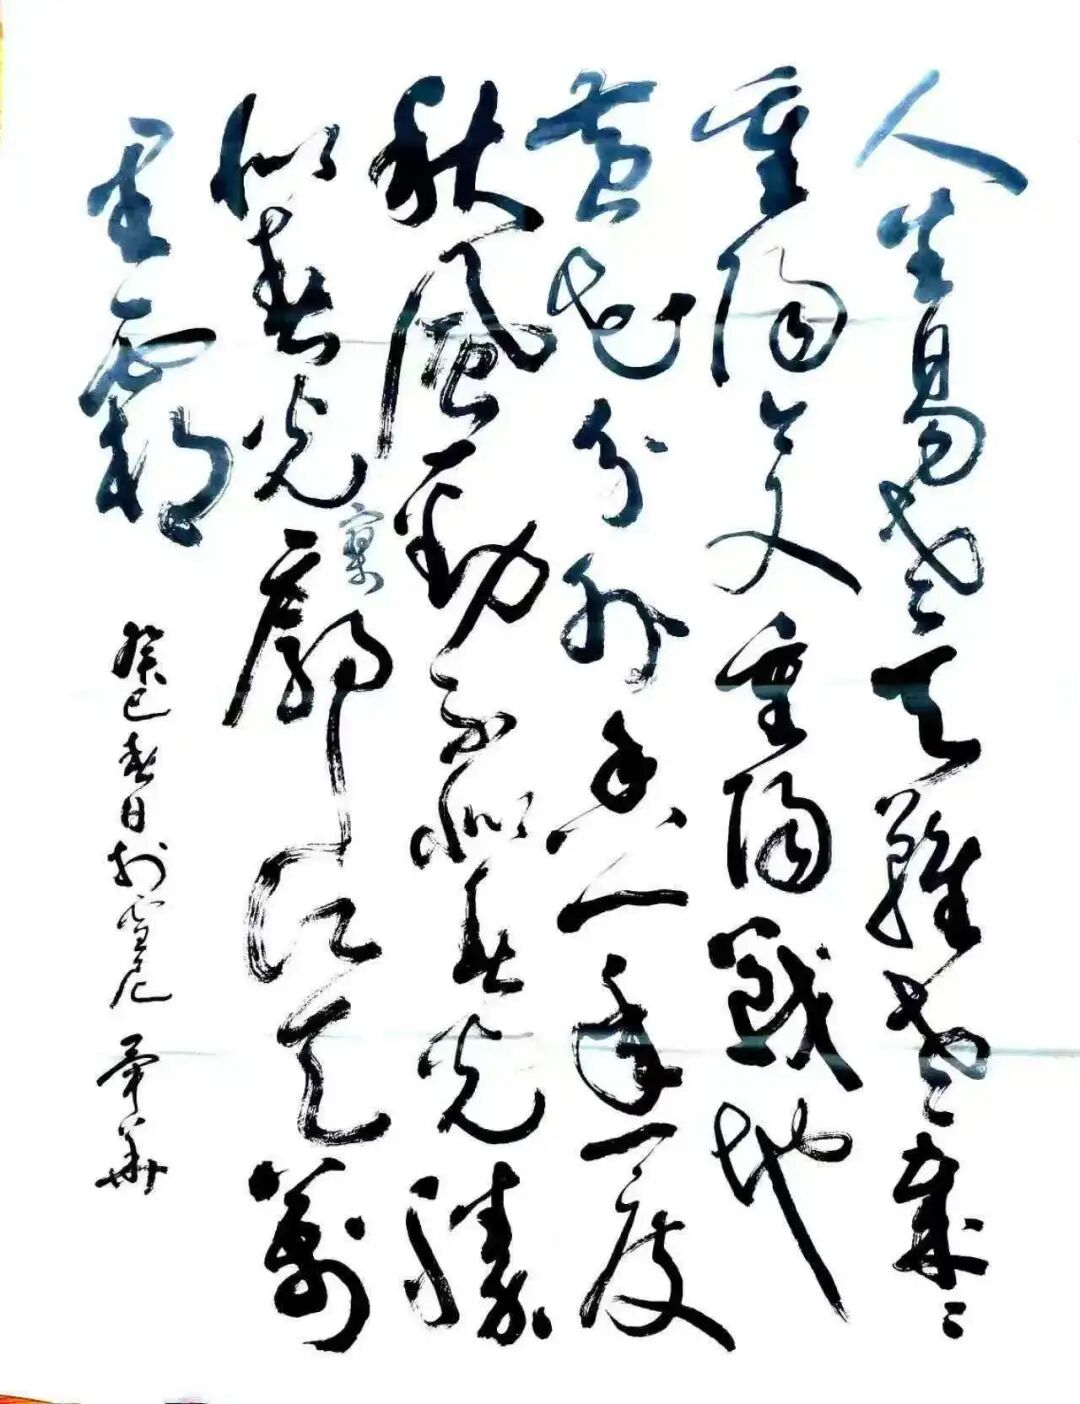 人生易老天難老歲〻
重陽今又重陽戰地
黄花分外香一年一度
秋風勁不似春光勝
似春光寥廓江天萬
里霜
癸巳春日於雪尼 華